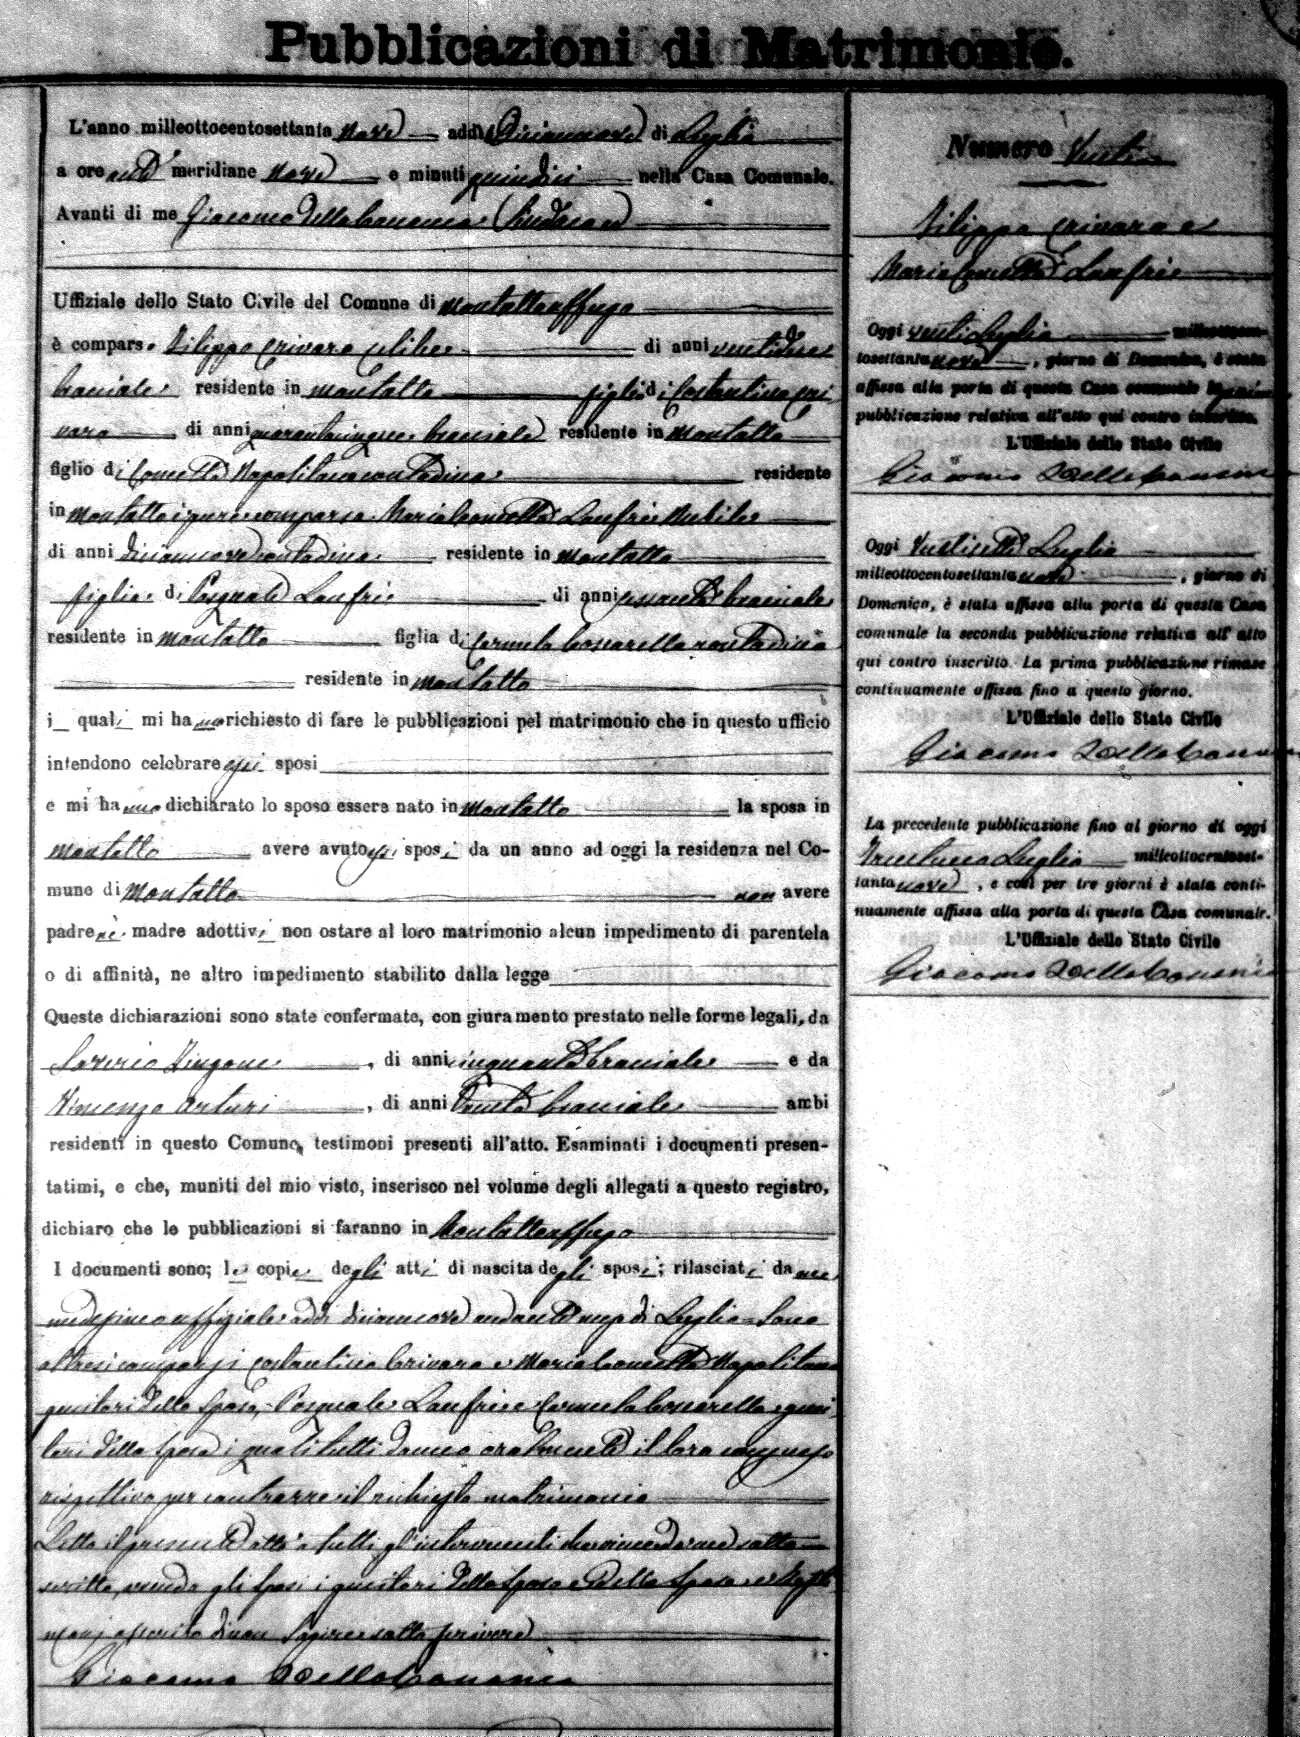 Pubblicazioni di Matrimonio.
L'anno milleottocentosettanta nove addì Diciannove di Luglio
a ore anti meridiane Nove e minuti quindici nella Casa Comunale.
Avanti di me Giacomo Della Cananea Sindaco
Uffiziale dello Stato Civile del Comune di Montalto Uffugo
è comparso Filippo Crivaro celibe di anni ventidue
bracciale residente in Montalto figlio di Costantino Cri-
varo di anni quarantacinque bracciale residente in Montalto
figlio di Concetta Napolitano contadina residente
in Montalto è pure comparsa Maria Concetta Lanfrie Nubile
di anni diciannove contadina residente in Montalto
figlia di Pasquale Lanfrie di anni sessanta bracciale
residente in Montalto figlia di Carmela Coscarella contadina
residente in Montalto
i quali mi hanno richiesto di fare le pubblicazioni pel matrimonio che in questo ufficio
intendono celebrare essi sposi
e mi hanno dichiarato lo sposo essere nato in Montalto la sposa in
Montalto avere avuto essi sposi da un anno ad oggi la residenza nel Co-
mune di Montalto non avere
padre nè madre adottivi non ostare al loro matrimonio alcun impedimento di parentela
o di affinità, ne altro impedimento stabilito dalla legge
Queste dichiarazioni sono state confermate, con giuramento prestato nelle forme legali, da
Saverio Vingone, di anni cinquanta bracciale e da
Vincenzo Arturi, di anni trenta bracciale ambi
residenti in questo Comune, testimoni presenti all'atto. Esaminati i documenti presen-
tatimi, e che, muniti del mio visto, inserisco nel volume degli allegati a questo registro,
dichiaro che le pubblicazioni si faranno in Montalto Uffugo
I documenti sono; le copie degli atti di nascita degli sposi; rilasciati da me
medesimo uffiziale addì diciannove andante mese di Luglio = Sono
altresì comparsi Costantino Crivaro e Maria Concetta Napolitano
genitori dello sposo, Pasquale Lanfrie e Carmela Coscarella geni-
tori della sposa i quali tutti danno oralmente il loro consenso
rispettivo per contrarre il richiesto matrimonio
Letto il presente atto a tutti gl'intervenuti da me sotto-
scritto, avendo gli sposi i genitori dello sposo e della sposa e testi-
moni asserito di non sapere sottoscrivere
Giacomo Della Cananea
Numero Venti
Filippo Crivaro e
Maria Concetta Lanfrie
Oggi venti Luglio milleottocen-
tosettanta nove, giorno di Domenica, è stata
affissa alla porta di questa Casa comunale la prima
pubblicazione relativa all'atto qui contro inscritto.
L'Uffiziale dello Stato Civile
Giacomo Della Cananea
Oggi Ventisette Luglio
milleottocentosettanta nove, giorno di
Domenica, è stata affissa alla porta di questa Casa
comunale la seconda pubblicazione relativa all' atto
qui contro inscritto. La prima pubblicazione rimase
continuamente affissa fino a questo giorno.
L'Uffiziale dello Stato Civile
Giacomo Della Cananea
La precedente pubblicazione fino al giorno di oggi
Trentuno Luglio milleottocentoset-
tanta nove, e così per tre giorni è stata conti-
nuamente affissa alla porta di questa Casa comunale.
L'Uffiziale dello Stato Civile
Giacomo Della Cananea